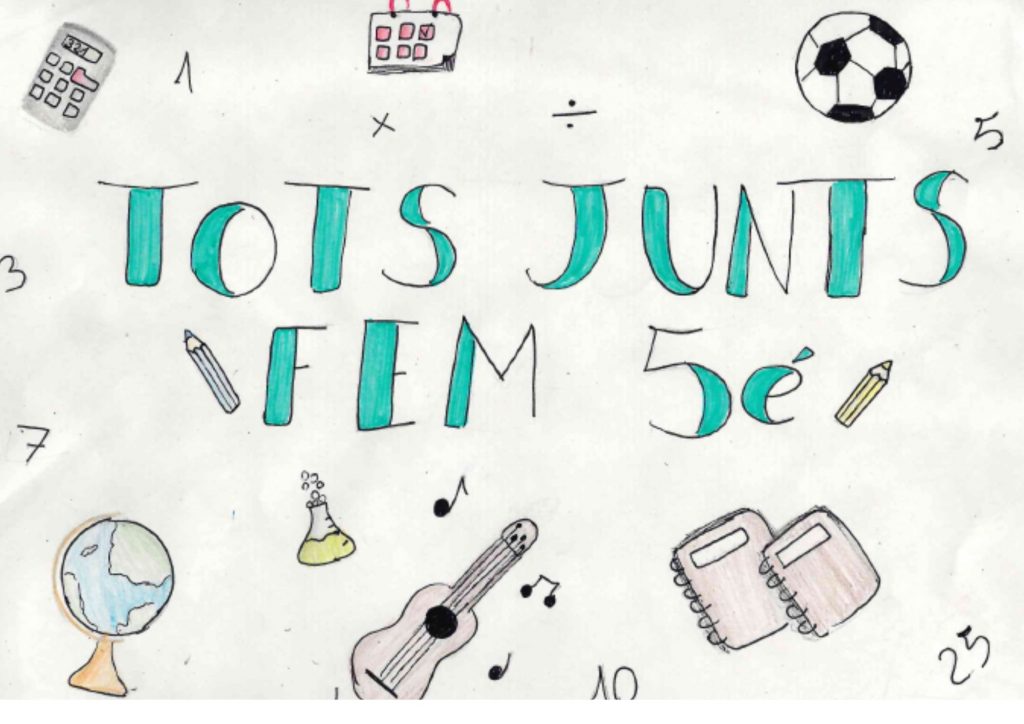 1
× ÷
5
TOTS JUNTS
3
FEM 5é
7
10
25